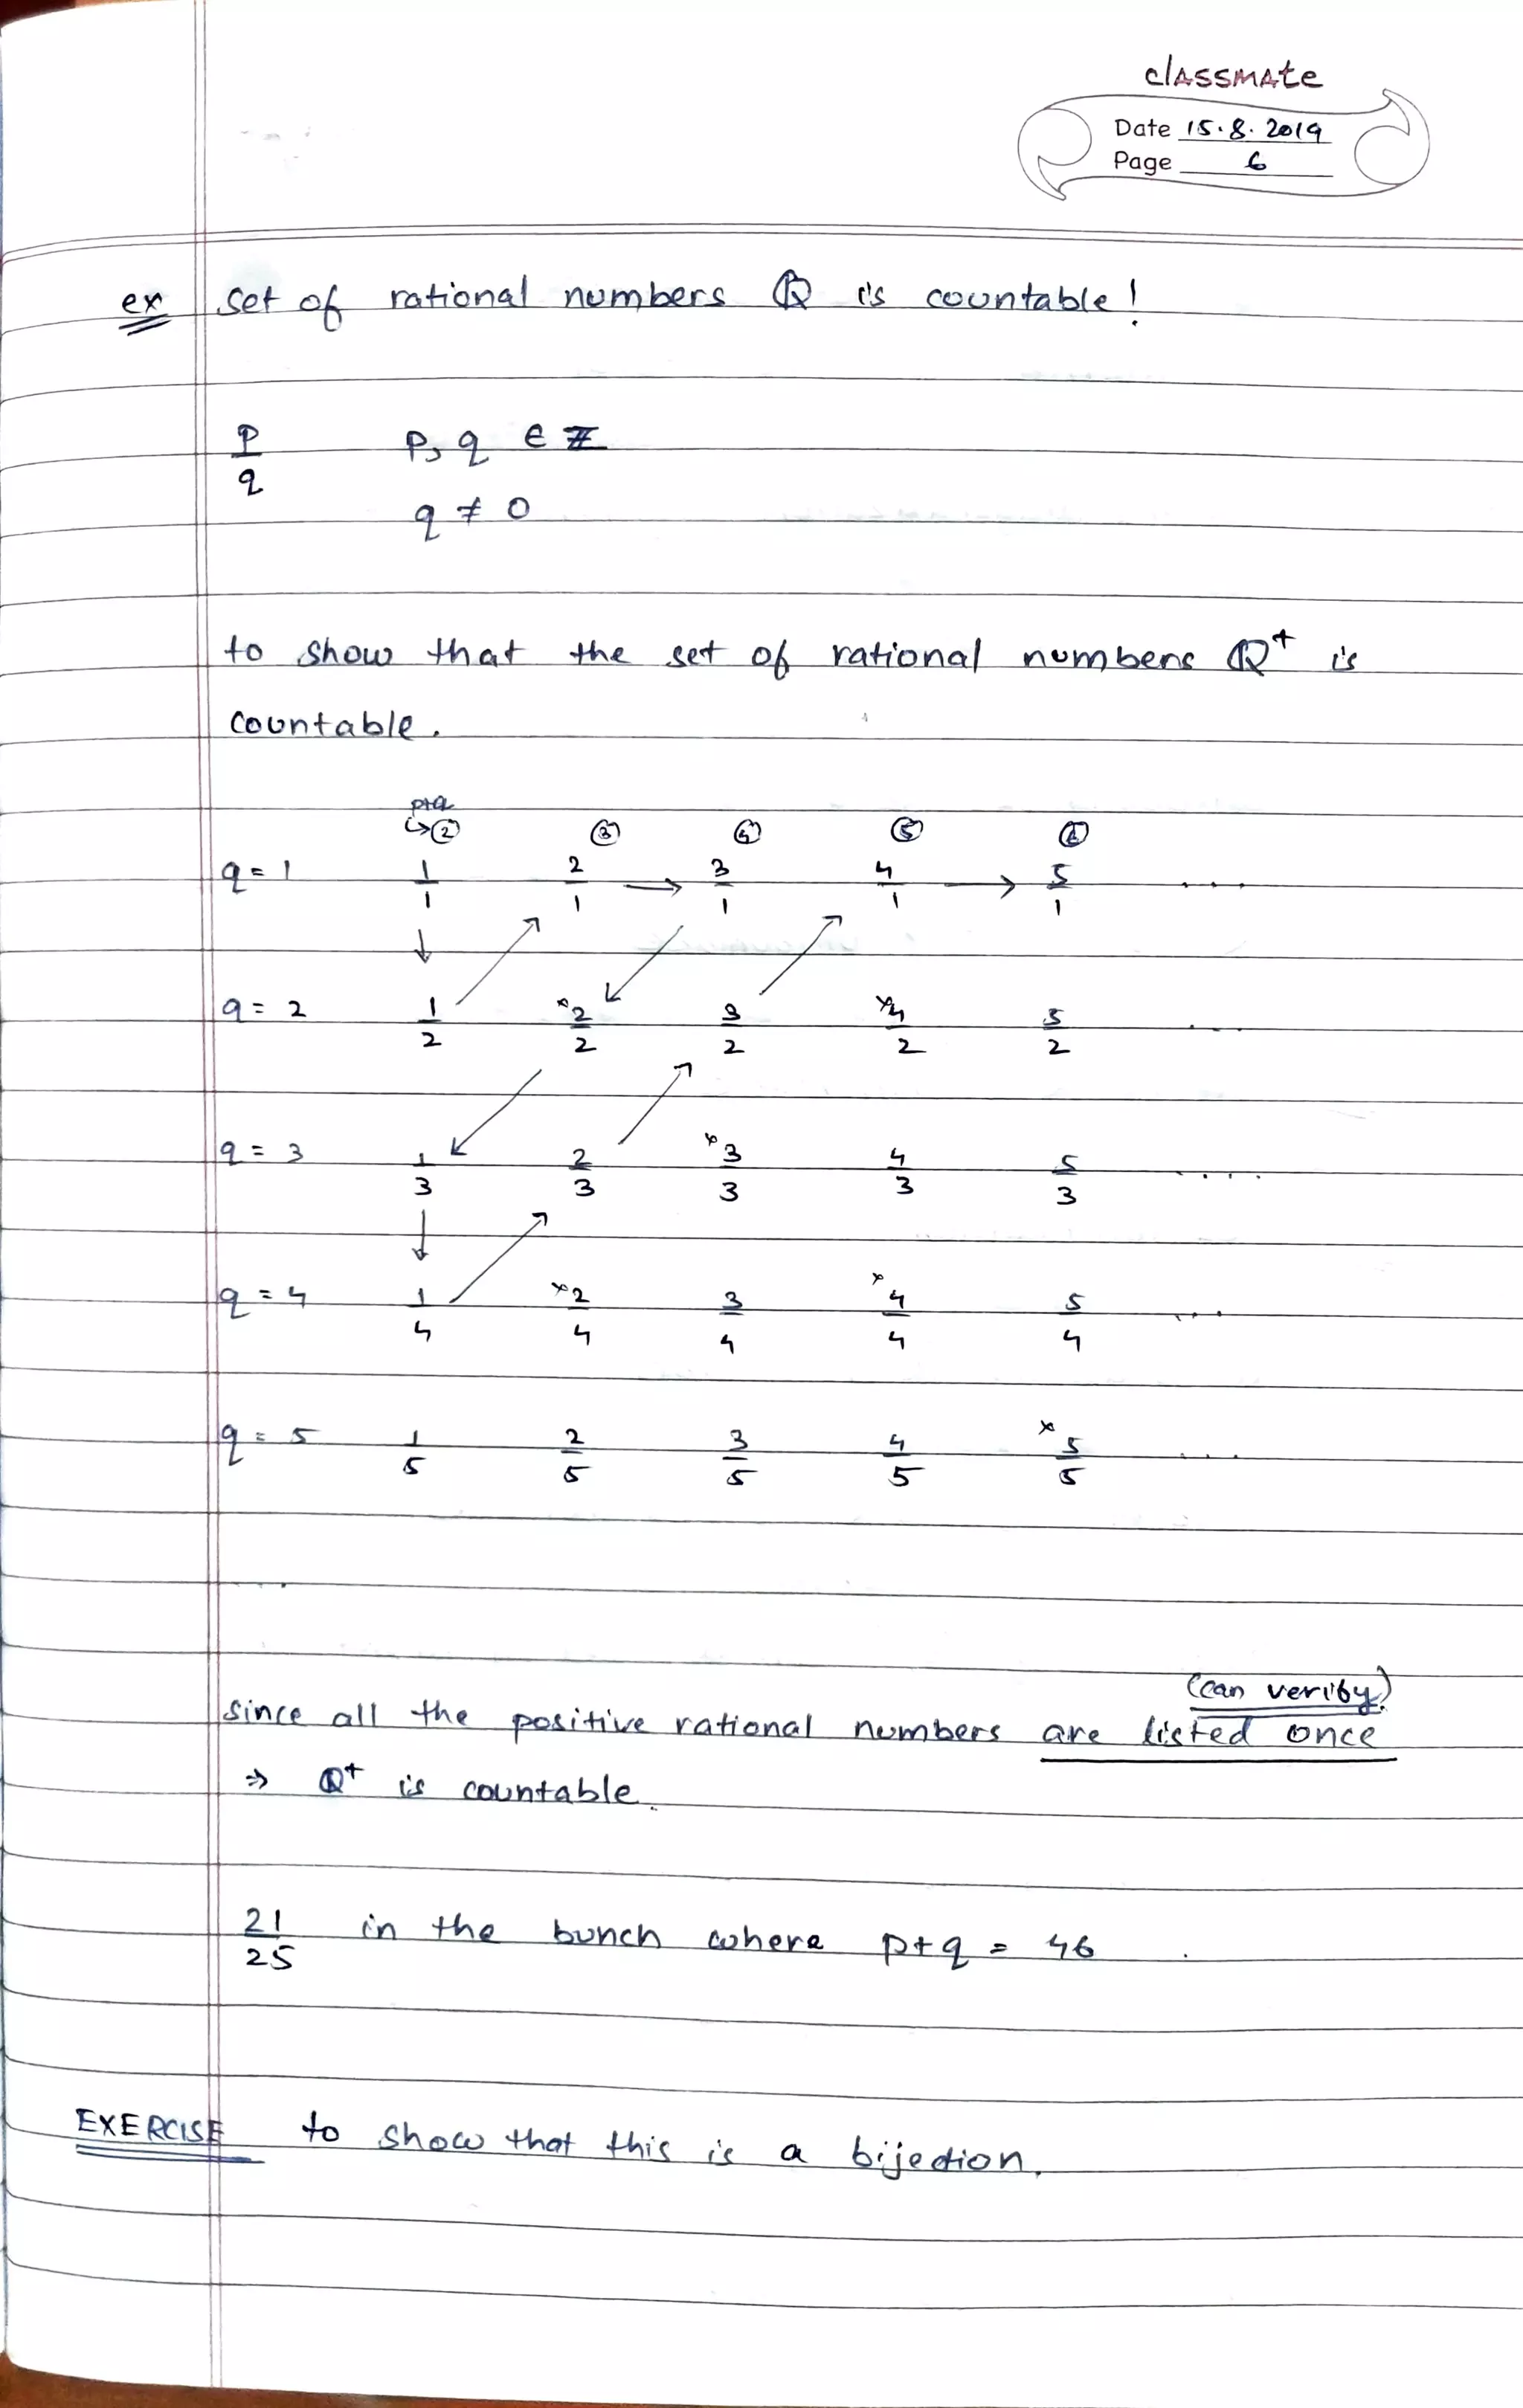 classmate
Date 15.8.2019
Page 6
ex set of rational numbers ℚ is countable!
p/q p, q ∈ ℤ
q ≠ 0
to show that the set of rational numbers ℚ⁺ is
countable.
p+q
↳② ③ ④ ⑤ ⑥
q = 1 1/1 2/1 → 3/1 4/1 → 5/1 ....
q = 2 1/2 ×2/2 3/2 ×4/2 5/2 ...
q = 3 1/3 2/3 ×3/3 4/3 5/3 ....
q = 4 1/4 ×2/4 3/4 ×4/4 5/4 ...
q = 5 1/5 2/5 3/5 4/5 ×5/5 ...
(can verify)
since all the positive rational numbers are listed once
⇒ ℚ⁺ is countable.
21/25 in the bunch where p+q = 46.
EXERCISE to show that this is a bijection.